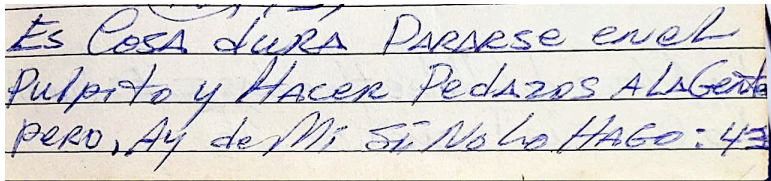 Es Cosa dura Pararse en el
Pulpito y Hacer Pedazos A La Gente
pero, Ay de Mi Si No Lo HAGO: 43